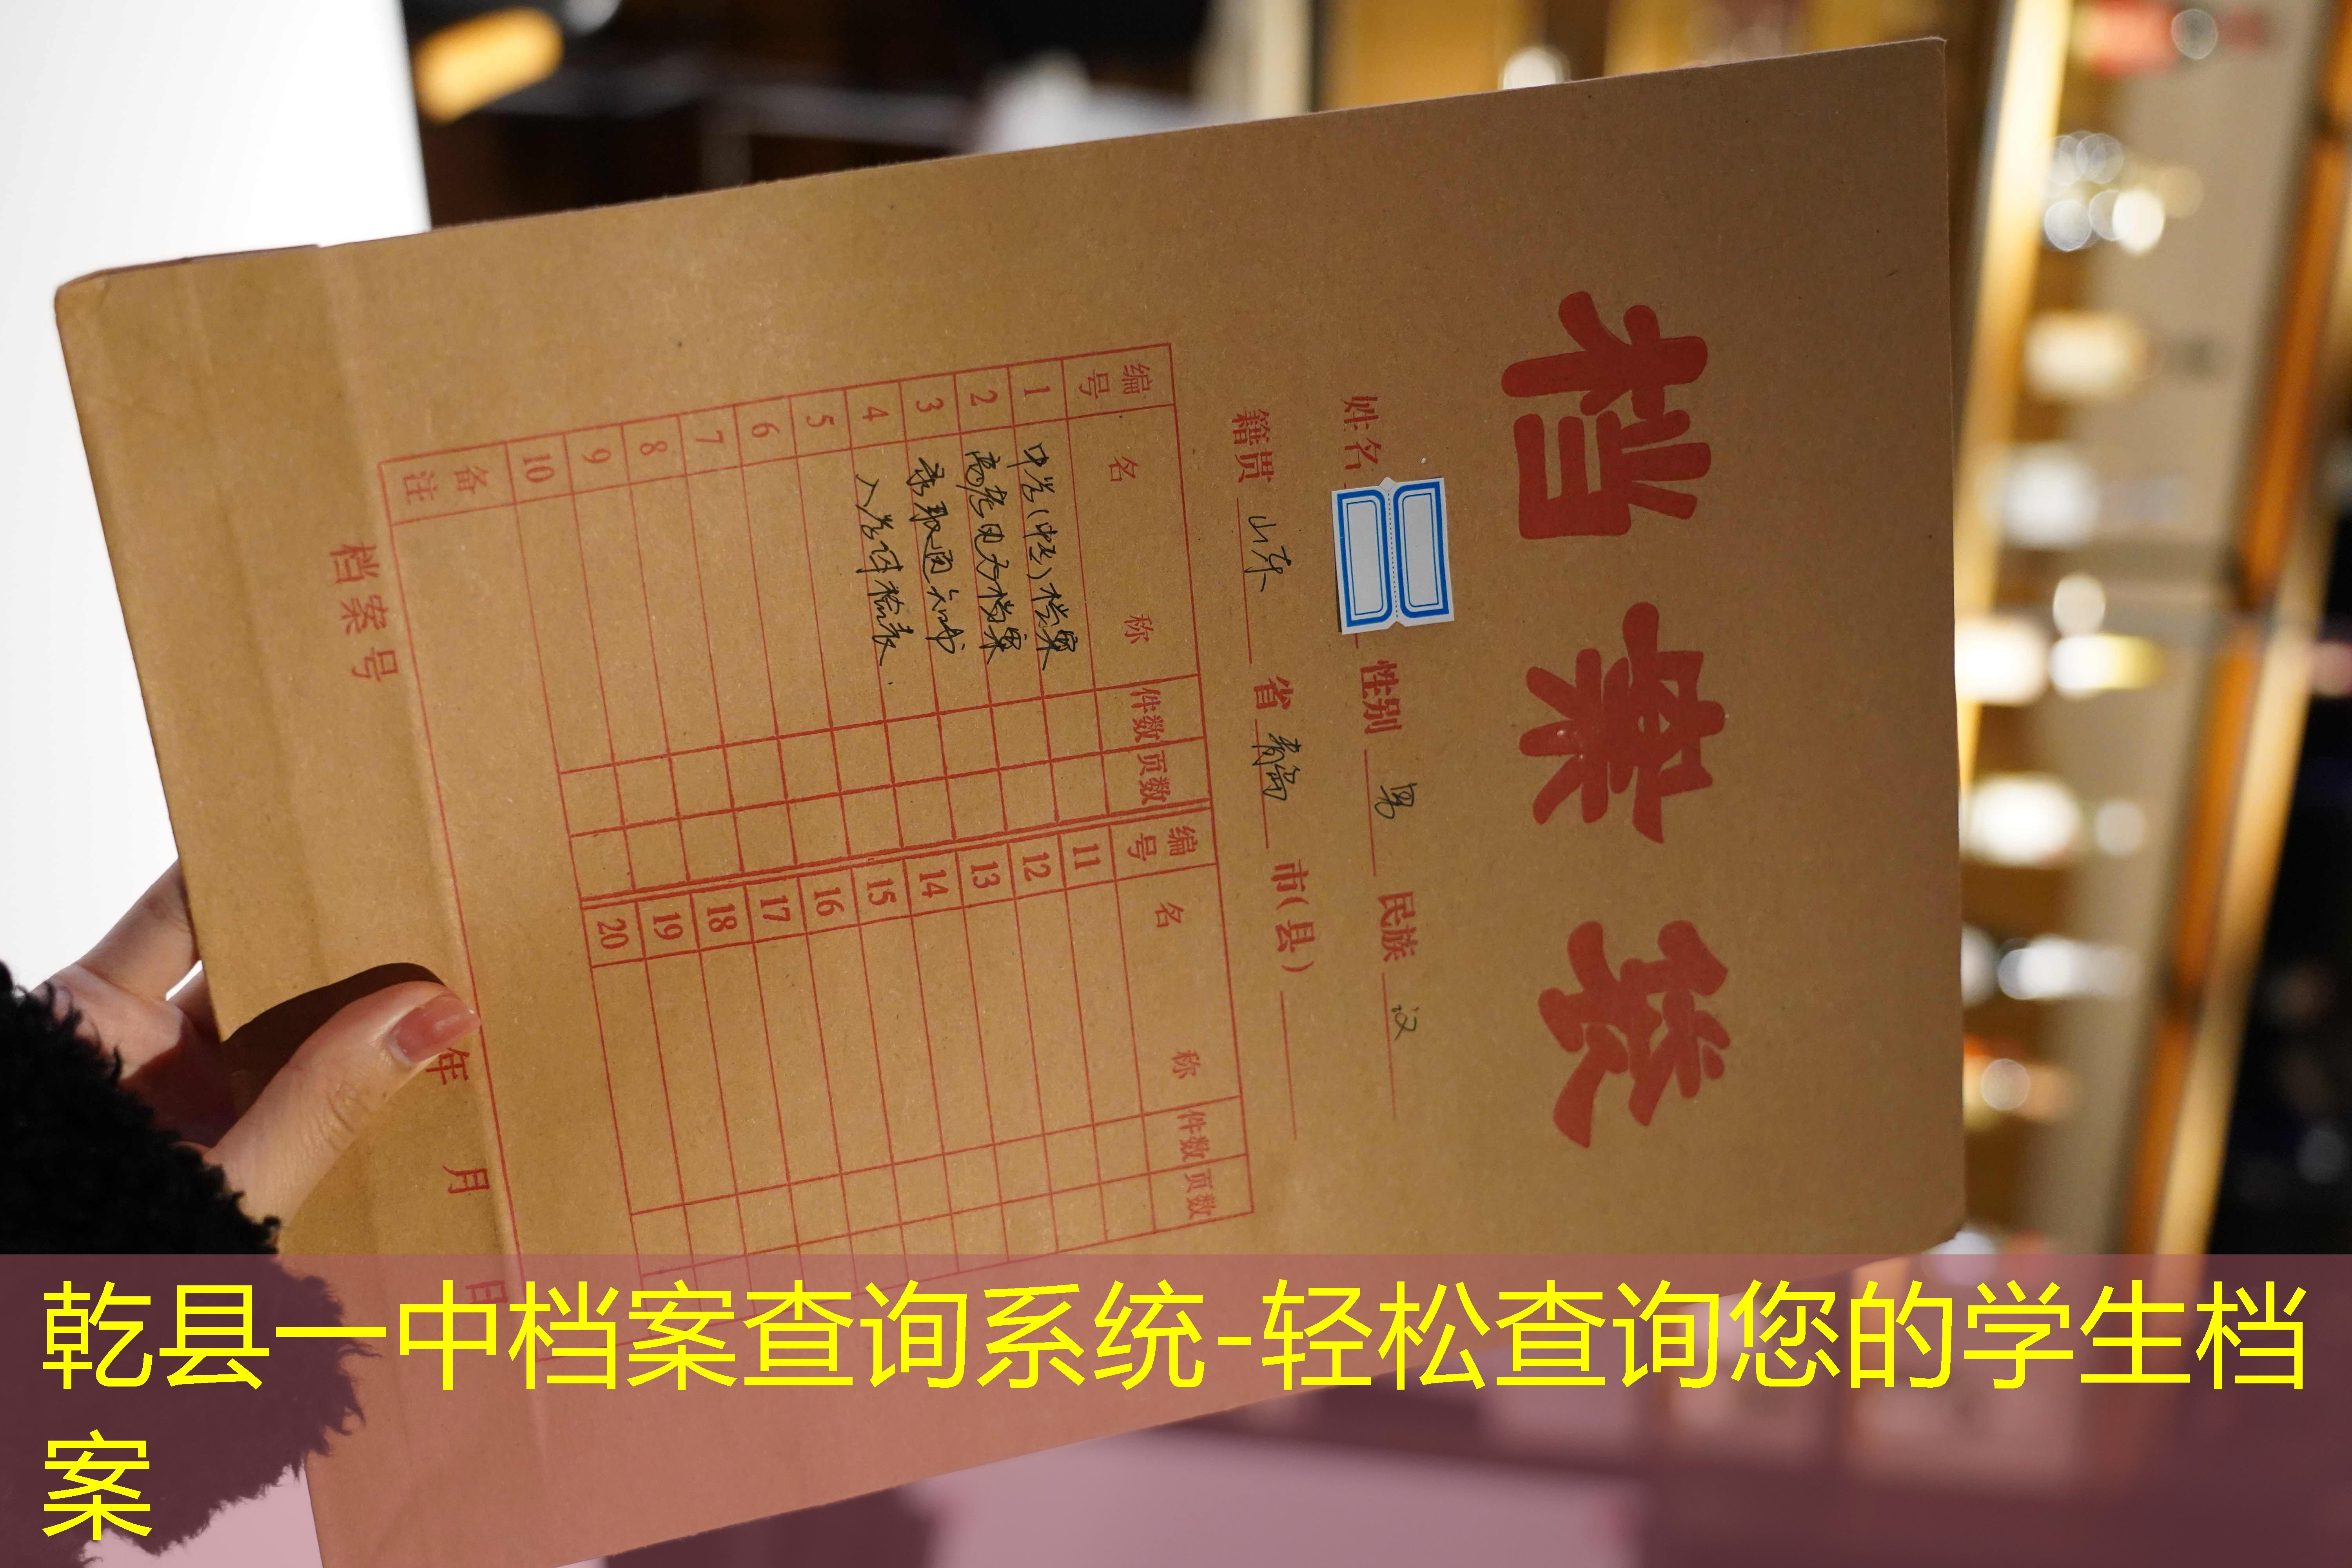 档案袋
姓名 性别 男 民族 汉
籍贯 山东 省 青岛 市(县)
编号 名称 件数 页数 编号 名称 件数 页数
1 中学(中专)档案 11
2 高考电子档案 12
3 录取通知书 13
4 入学体检表 14
5 15
6 16
7 17
8 18
9 19
10 20
备注
档案号 年 月 日
乾县一中档案查询系统-轻松查询您的学生档
案